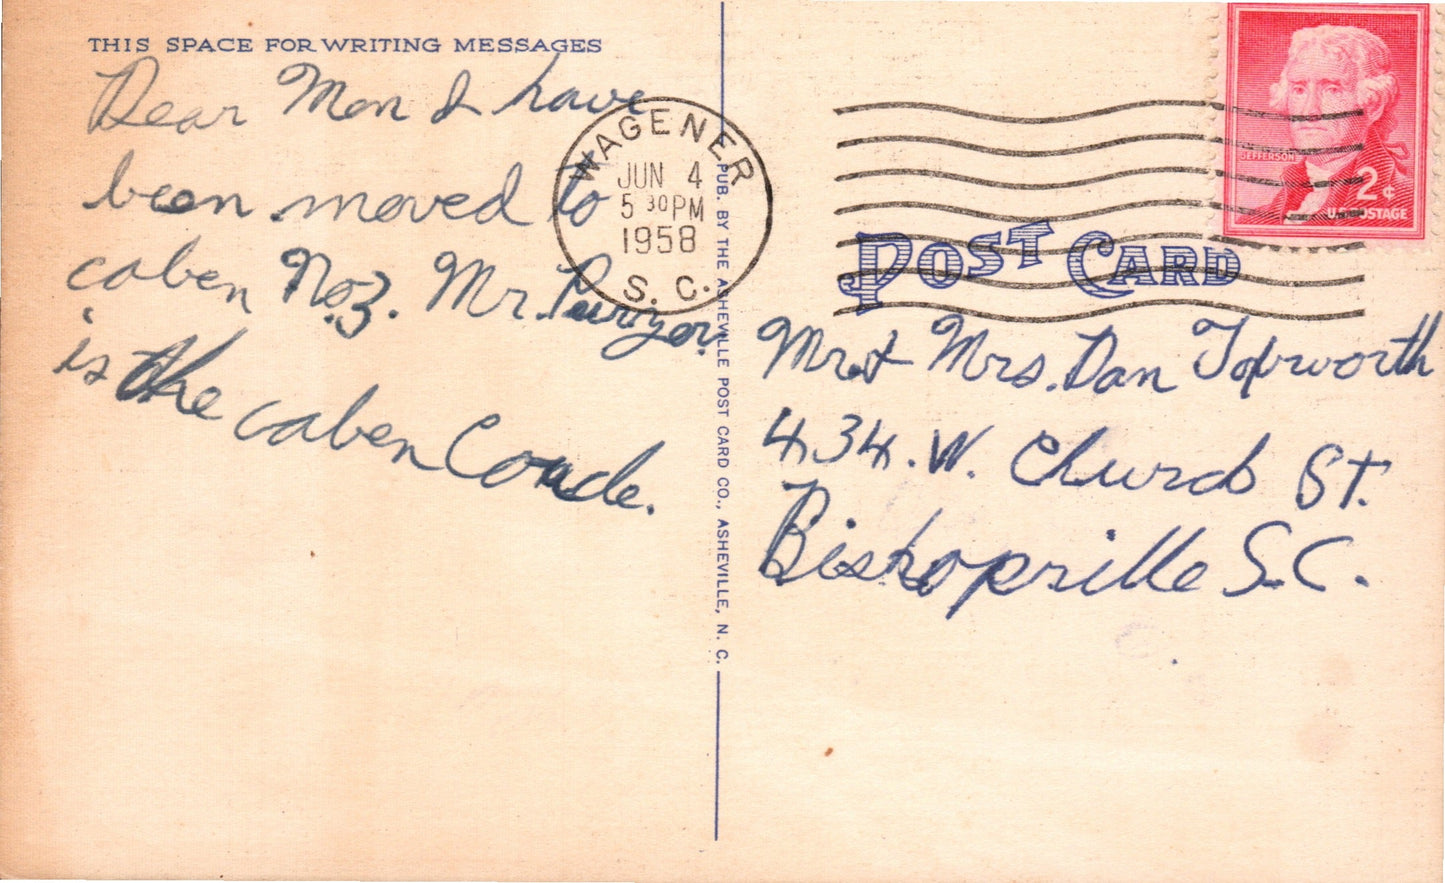 THIS SPACE FOR WRITING MESSAGES
Dear Mon I have
been moved to
caben No. 3. Mr. Puryer
is the caben Coude.
WAGENER
JUN 4
5 30 PM
1958
S. C.
PUB. BY THE ASHEVILLE POST CARD CO., ASHEVILLE, N. C.
JEFFERSON
2¢
U.S. POSTAGE
POST CARD
Mr. & Mrs. Dan
434. W. Church St.
Bishopville S.C.